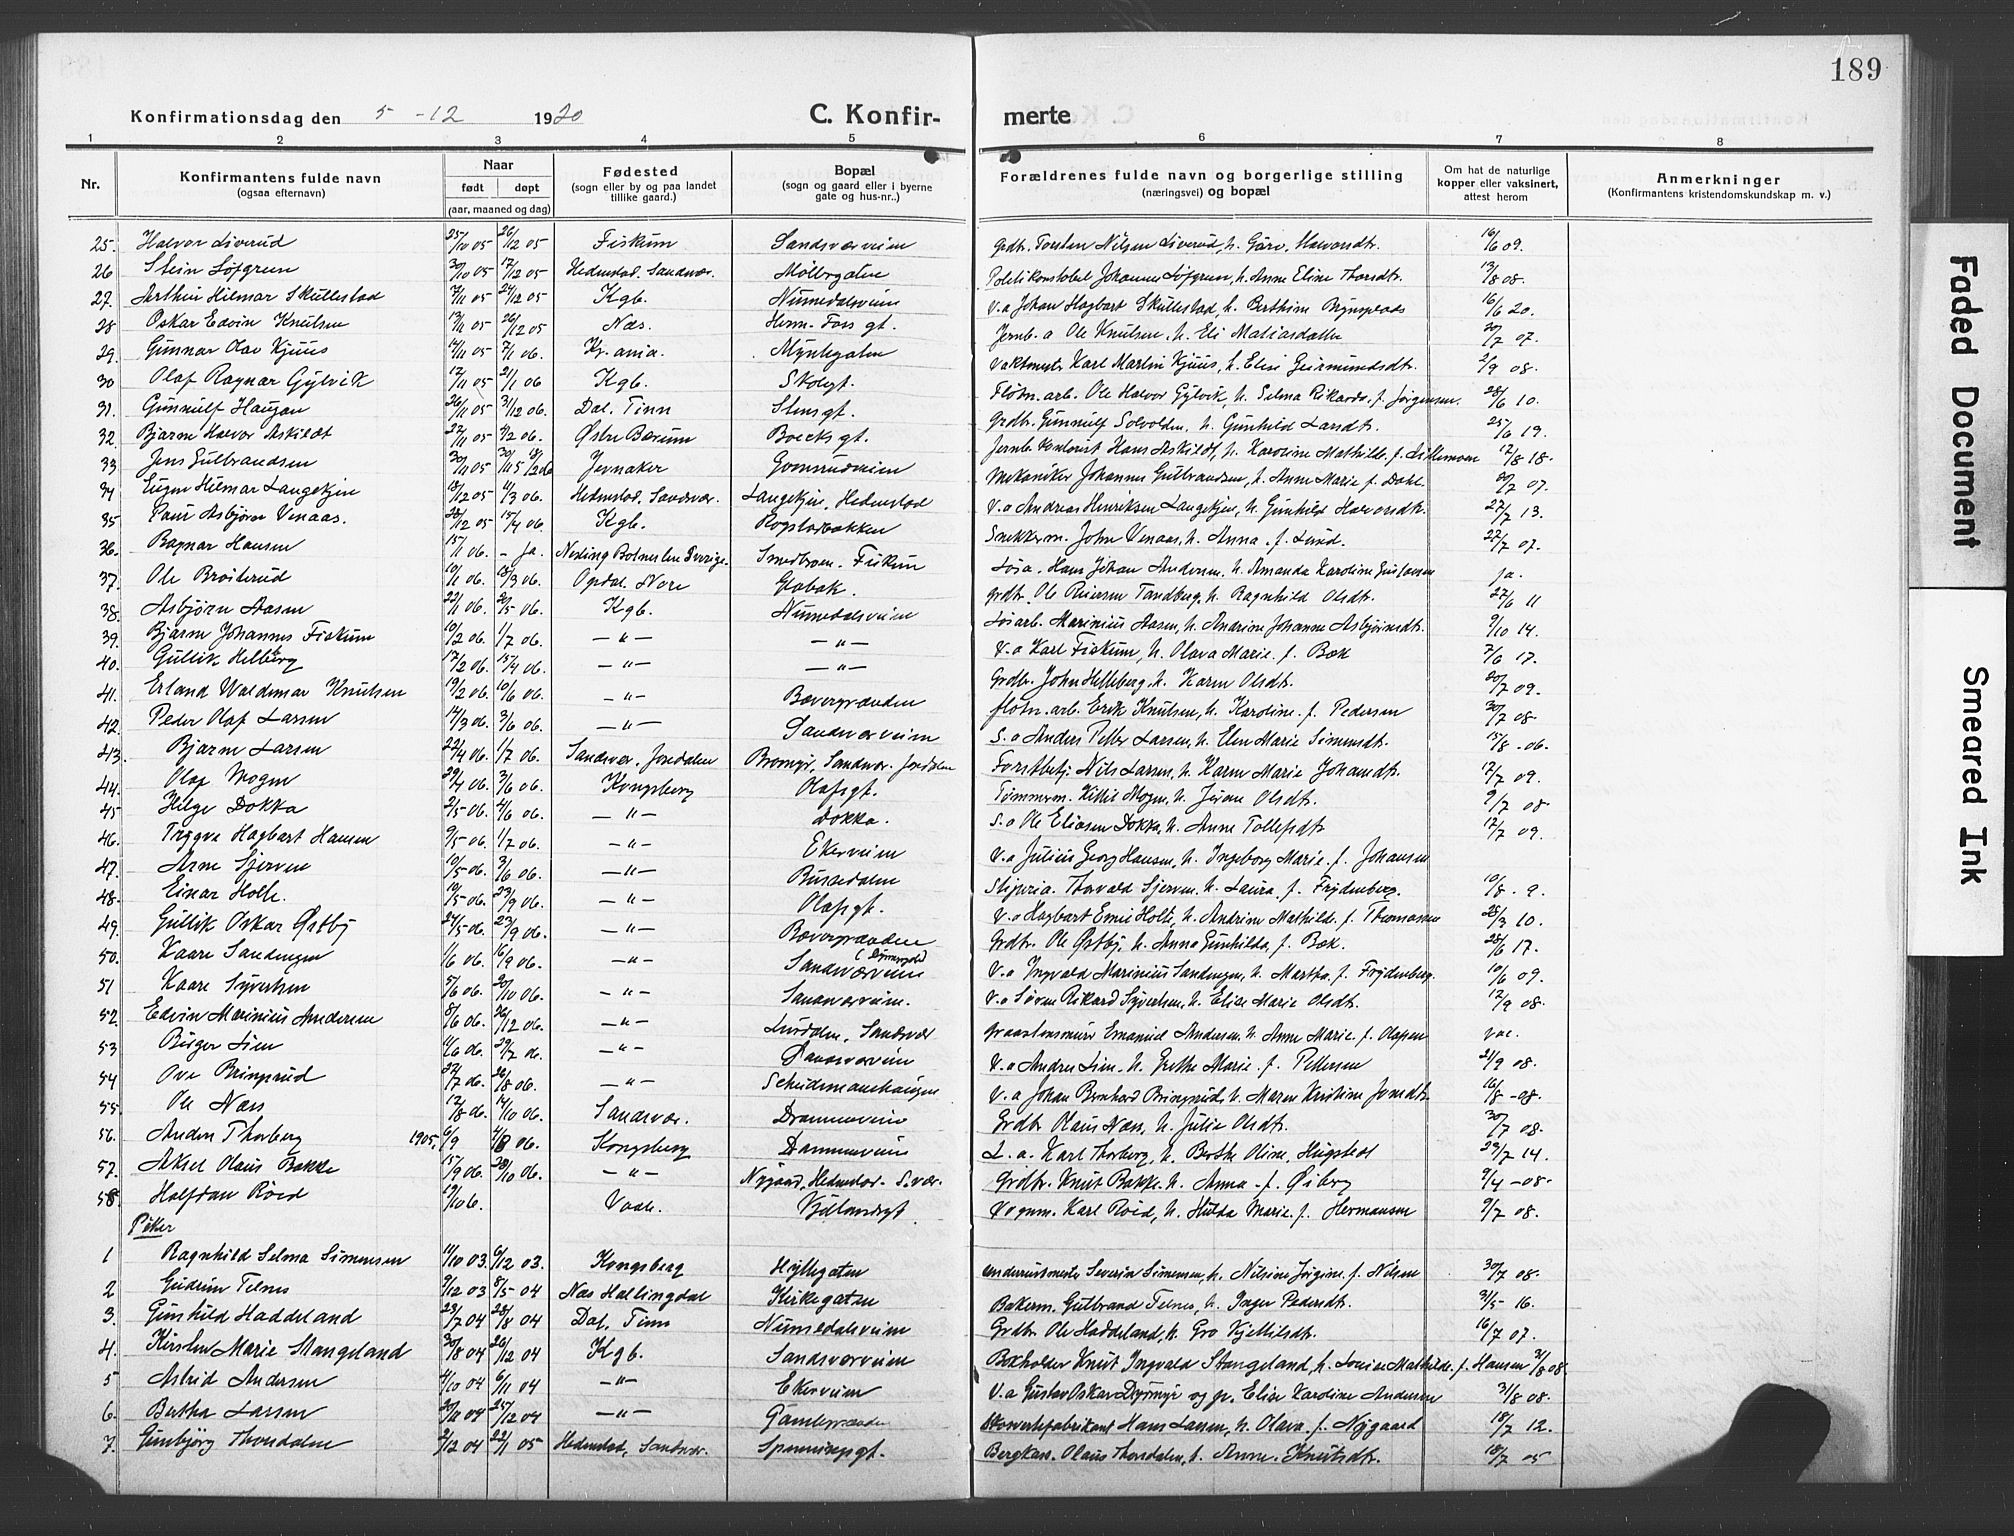 189
Konfirmationsdag den 5 - 12 1920 C. Konfir- merte
1 2 3 4 5 6 7 8
Nr. Konfirmantens fulde navn (ogsaa efternavn) Naar født døpt (aar, maaned og dag) Fødested (sogn eller by og paa landet tillike gaard.) Bopæl (sogn og gaard eller i byerne gate og hus-nr..) Forældrenes fulde navn og borgerlige stilling (næringsvei) og bopæl Om hat de naturlige kopper eller vaksinert, attest herom Anmerkninger (Konfirmantens kristendomskundskap m. v.)
25. Halvor Liverud 25/10 05 26/12 05 Fiskum Sandsværveien Grdbr. Torsten Nilsen Liverud, h. Guro Halvorsdtr. 16/6 09.
26 Stein Löfgren 30/10 05 17/12 05 Hedenstad, Sandsvær. Møllergaten Politikonstabel Johannes Löfgren, h. Anne Eline Thorsdtr. 13/8 08.
27. Arthur Hilmar Skullestad 7/11 05 24/12 05 Kgb. Numedalsveien V.a Johan Hagbart Skullestad, h. Berthine 16/6 20.
28 Oskar Edvin Knutsen 13/11 05 26/12 05 Næs. Herm. Foss gt. Jernb. a Ole Knutsen, h. Eli Matiasdatter 20/7 07.
29. Gunnar Olav Kjuus 14/11 05 7/1 06. Kr.ania. Myntegaten Vaktmester Karl Martin Kjuus, h. Elise Geirmundsdtr. 2/9 08.
30 Olaf Ragnar Gylvik 17/11 05 21/1 06 Kgb. Skolegt. Fløtn. arb. Ole Halvor Gylvik, h. Selma Rikarda f. Jørgensen. 28/6 10.
31. Gunnulf Haugan 26/11 05 31/12 06. Dal. Tinn Stensgt. Grdbr. Gunnulf Solvolden, h. Gunhild Larsdtr. 25/6 19.
32. Bjarne Halvor Askildt 22/11 05 4/2 06. Østre Bærum Boecksgt. Jernb. kontorist Hans Askildt, h. Karoline Mathilde f. Lillemoen 12/8 18.
33 Jens Gulbrandsen 30/11 05 Jevnaker Gomsrudveien Mekaniker Johannes Gulbrandsen, h. Anne Marie f. Dahl 20/7 07.
34 Eugen Hilmar Langekjen 18/12 05 11/3 06. Hedenstad, Sandsvær. Langekjen, Hedenstad V.a Andreas Henriksen Langekjen, h. Gunhild Halvorsdtr. 27/7 13.
35 Paul Asbjørn Venaas. 28/12 05 15/4 06. Kgb. Rogstadbakken Snekkerm. John Venaas, h. Anna f. Lund. 22/7 07.
36. Ragnar Hansen 15/1 06. - ja. Smedbroen. Fiskum Hans Johan Andersen, h. Amanda Karoline Gustavsen ja.
37. Ole Bröiterud 10/1 06. 18/3 06. Opdal. Nore Glabak. Grdbr. Ole Reiersen Tandberg, h. Ragnhild Olsdtr. 27/6 11
38. Asbjørn Aasen 22/1 06. 20/5 06. Kgb. Numedalsveien Marinius Aasen, h. Anarine Johanne Asbjørnsdtr. 9/10 14.
39. Bjarne Johannes Fiskum 10/2 06. 1/7 06. — " — — " — V.a Karl Fiskum, h. Olava Marie f. Bæk 7/6 17.
40. Gullik Helberg 17/2 06. 15/4 06. — " — — " — Grdbr. John Helleberg, h. Karen Olsdtr. 20/7 09.
41. Erland Waldemar Knutsen 19/2 06. 10/6 06. — " — Bævergrænden Fløtn. arb. Erik Knutsen, h. Karoline f. Pedersen 30/7 08.
42. Peder Olaf Larsen 14/3 06. 3/6 06. — " — Sandsværveien S.a Anders Petter Larsen, h. Elen Marie Simensdtr. 15/8 - 06.
43. Bjarne Larsen 22/4 06. 1/7 06. Sandsvær, Jondalen Sandsvær. Jondalen Forstbetj. Nils Larsen, h. Karen Marie Johansdtr. 17/7 09.
44. Olaf Mogen 29/4 06. 3/6 06. Kongsberg Olafsgt. Tømmerm. Kittil Mogen, h. Jörane Olsdtr. 9/7 08.
45 Helge Dokka 2/5 06. 4/6 06. — " — Dokka. S.a Ole Eliasen Dokka, h. Anne Tollefsdtr. 17/7 09.
46. Trygve Hagbart Hansen 9/5 06. 1/7 06. — " — Ekerveien V.a Julius Georg Hansen, h. Ingeborg Marie f. Johansen
47. Arne Sjerven 10/5 06. 3/6 06. — " — Bussedalen Thorvald Sjerven, h. Laura f. Frydenberg. 10/8 - 9.
48. Einar Holte. 19/5 06. 23/9 06. — " — Olafsgt. V.a Hagbart Emil Holte, h. Andrine Mathilde f. Thomassen 28/3 10.
49. Gullik Oskar Østby 24/5 06. 23/9 06. — " — Bævergrænden Grdbr. Ole Østby, h. Anne Gunhilda f. Bæk. 28/6 17.
50. Kaare Sandengen 1/6 06. 16/9 06. — " — Sandsværveien V.a Ingvald Marinius Sandengen, h. Martha f. Frydenberg. 10/6 09.
51 Kaare Syvertsen 5/6 06. 20/10 06. — " — Sandsværveien. V.a Søren Rikard Syvertsen, h. Elise Marie Olsdtr. 12/9 08.
52. Edvin Marinius Andersen 8/6 06. 26/12 06. — " — Lurdalen, Sandsvær Graastensmurer Emanuel Andersen, h. Anne Marie f. Olafsen vac.
53 Birger Lien 11/6 06. 29/7 06. — " — Sandsværveien V.a Anders Lien, h. Grethe Marie f. Pettersen 21/9 08.
54 Ove Bringsrud 22/7 06. 26/8 06. — " — Scheidemanshaugen V.a Johan Bernhard Bringsrud, h. Maren Kristine Jonsdtr. 16/8 - 08.
55. Ole Næss 12/8 06. 14/10 06. Sandsvær. Drammensveien Grdbr. Olaus Næss, h. Julie Olsdtr. 30/7 08.
56. Anders Thorberg 1905. 6/9 4/8 06. Kongsberg Drammensveien L.a. Karl Thorberg, h. Berthe Oline Hugstedt 29/7 14.
57. Aksel Olaus Bakke 15/9 06. 28/10 06. — " — Nygaard, Hedenstad. S.vær. Grdbr. Knut Bakke, h. Anna f. Øiberg 9/4 - 08.
58. Halfdan Röed 19/10 06. Vaale. Vognm. Karl Roed, h. Hulda Marie f. Hermansen 9/7 08.
Piker
1 Ragnhild Selma Simensen 11/10 03. 6/12 03. Kongsberg Hyttegaten Severin Simensen, h. Nilsine Jørgine f. Nilsen 30/7 08.
2 Gudrun Telnes 9/12 03 8/5 04 Næs Hallingdal Kirkegaten Bakerm. Gulbrand Telnes, h. Inger Pedersdtr. 31/5 - 16.
3. Gunhild Haddeland 23/7 04 28/8 04 Dal. Tinn Numedalsveien Grdbr. Ole Haddeland, h. Gro Kjettilsdtr. 16/7 07.
4. Kirsten Marie Stangeland 30/8 04 26/12 04 Kgb. Sandsværveien Bokholder Knut Ingvald Stangeland, h. Louise Mathilde f. Hansen 31/8 08.
5 Astrid Andersen 4/10 04 6/11 04 — " — Ekerveien V.a Gustav Oskar Dyrmyr og pi. Elise Karoline Andersen 31/8 08.
6. Bertha Larsen 20/11 04 25/12 04 — " — Gamlegrænden Hans Larsen, h. Olava f. Nygaard 18/7 12.
7. Gunbjörg Thorsdalen 2/12 04 22/1 05 Hedenstad, Sandsvær. Spenningsgt. Bergkass. Olaus Thorsdalen, h. Anne Knutsdtr. 18/7 05
Faded Document
Smeared Ink